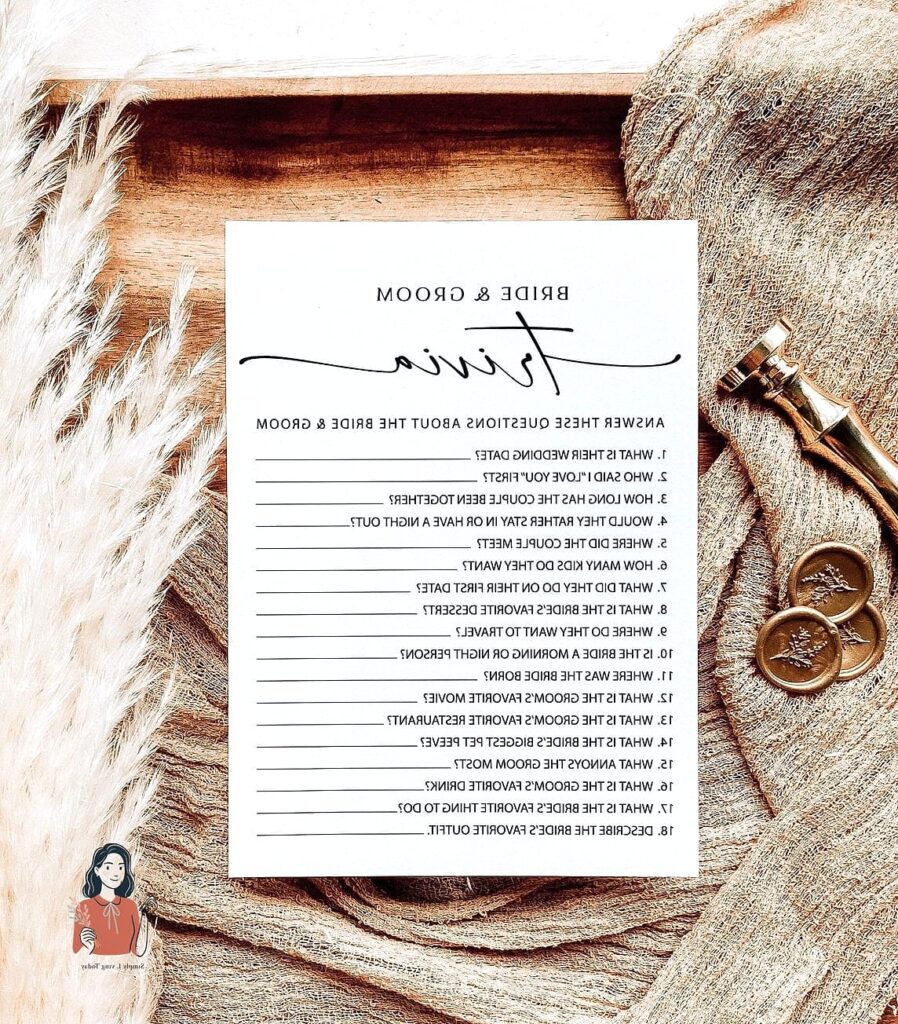 BRIDE & GROOM
trivia
ANSWER THESE QUESTIONS ABOUT THE BRIDE & GROOM
1. WHAT IS THEIR WEDDING DATE?
2. WHO SAID I "LOVE YOU" FIRST?
3. HOW LONG HAS THE COUPLE BEEN TOGETHER?
4. WOULD THEY RATHER STAY IN OR HAVE A NIGHT OUT?
5. WHERE DID THE COUPLE MEET?
6. HOW MANY KIDS DO THEY WANT?
7. WHAT DID THEY DO ON THEIR FIRST DATE?
8. WHAT IS THE BRIDE'S FAVORITE DESSERT?
9. WHERE DO THEY WANT TO TRAVEL?
10. IS THE BRIDE A MORNING OR NIGHT PERSON?
11. WHERE WAS THE BRIDE BORN?
12. WHAT IS THE GROOM'S FAVORITE MOVIE?
13. WHAT IS THE GROOM'S FAVORITE RESTAURANT?
14. WHAT IS THE BRIDE'S BIGGEST PET PEEVE?
15. WHAT ANNOYS THE GROOM MOST?
16. WHAT IS THE GROOM'S FAVORITE DRINK?
17. WHAT IS THE BRIDE'S FAVORITE THING TO DO?
18. DESCRIBE THE BRIDE'S FAVORITE OUTFIT.
Simply Living Today